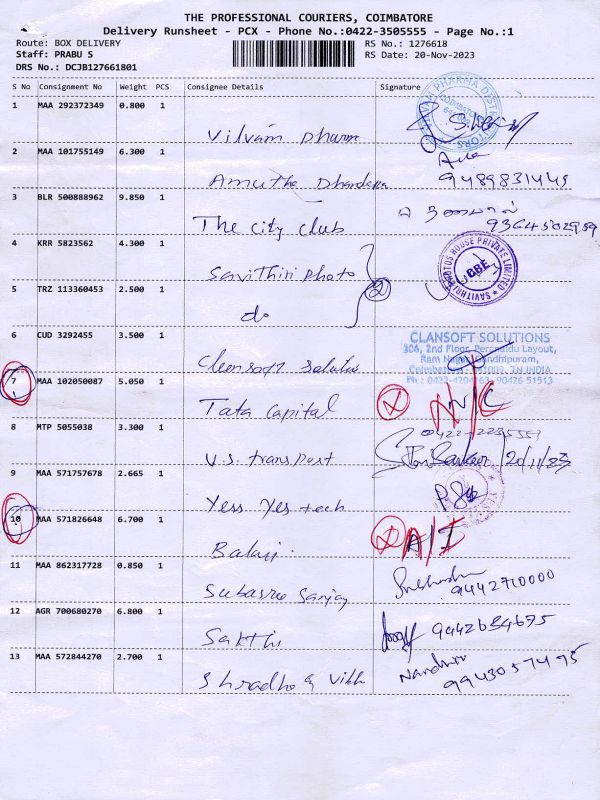 THE PROFESSIONAL COURIERS, COIMBATORE
Delivery Runsheet - PCX - Phone No.:0422-3505555 - Page No.:1
Route: BOX DELIVERY RS No.: 1276618
Staff: PRABU S RS Date: 20-Nov-2023
DRS No.: DCJB127661801
S No Consignment No Weight PCS Consignee Details Signature
1 MAA 292372349 0.800 1
Vilvam Pharma
2 MAA 101755149 6.300 1
Amutha
9489831449
3 BLR 500888962 9.850 1
The city club
4 KRR 5823562 4.300 1
Savithiri Photo
5 TRZ 113360453 2.500 1
do
2
SAVITHRI PHOTOS HOUSE PRIVATE LIMITED
CBE
6 CUD 3292455 3.500 1
CLANSOFT SOLUTIONS
306, 2nd Floor, Perumaidu Layout,
Ram Nagar, Gandhipuram,
7 MAA 102050087 5.050 1
Tata Capital
N/C
8 MTP 5055038 3.300 1
V.S. transport
20/11/23
9 MAA 571757678 2.665 1
Yess Yes tech
10 MAA 571826648 6.700 1
Balaji
A/I
11 MAA 862317728 0.850 1
Subasree Sanjay
9442710000
12 AGR 700680270 6.800 1
Sakthi
9442634675
13 MAA 572844270 2.700 1
Shradha &
9943057495